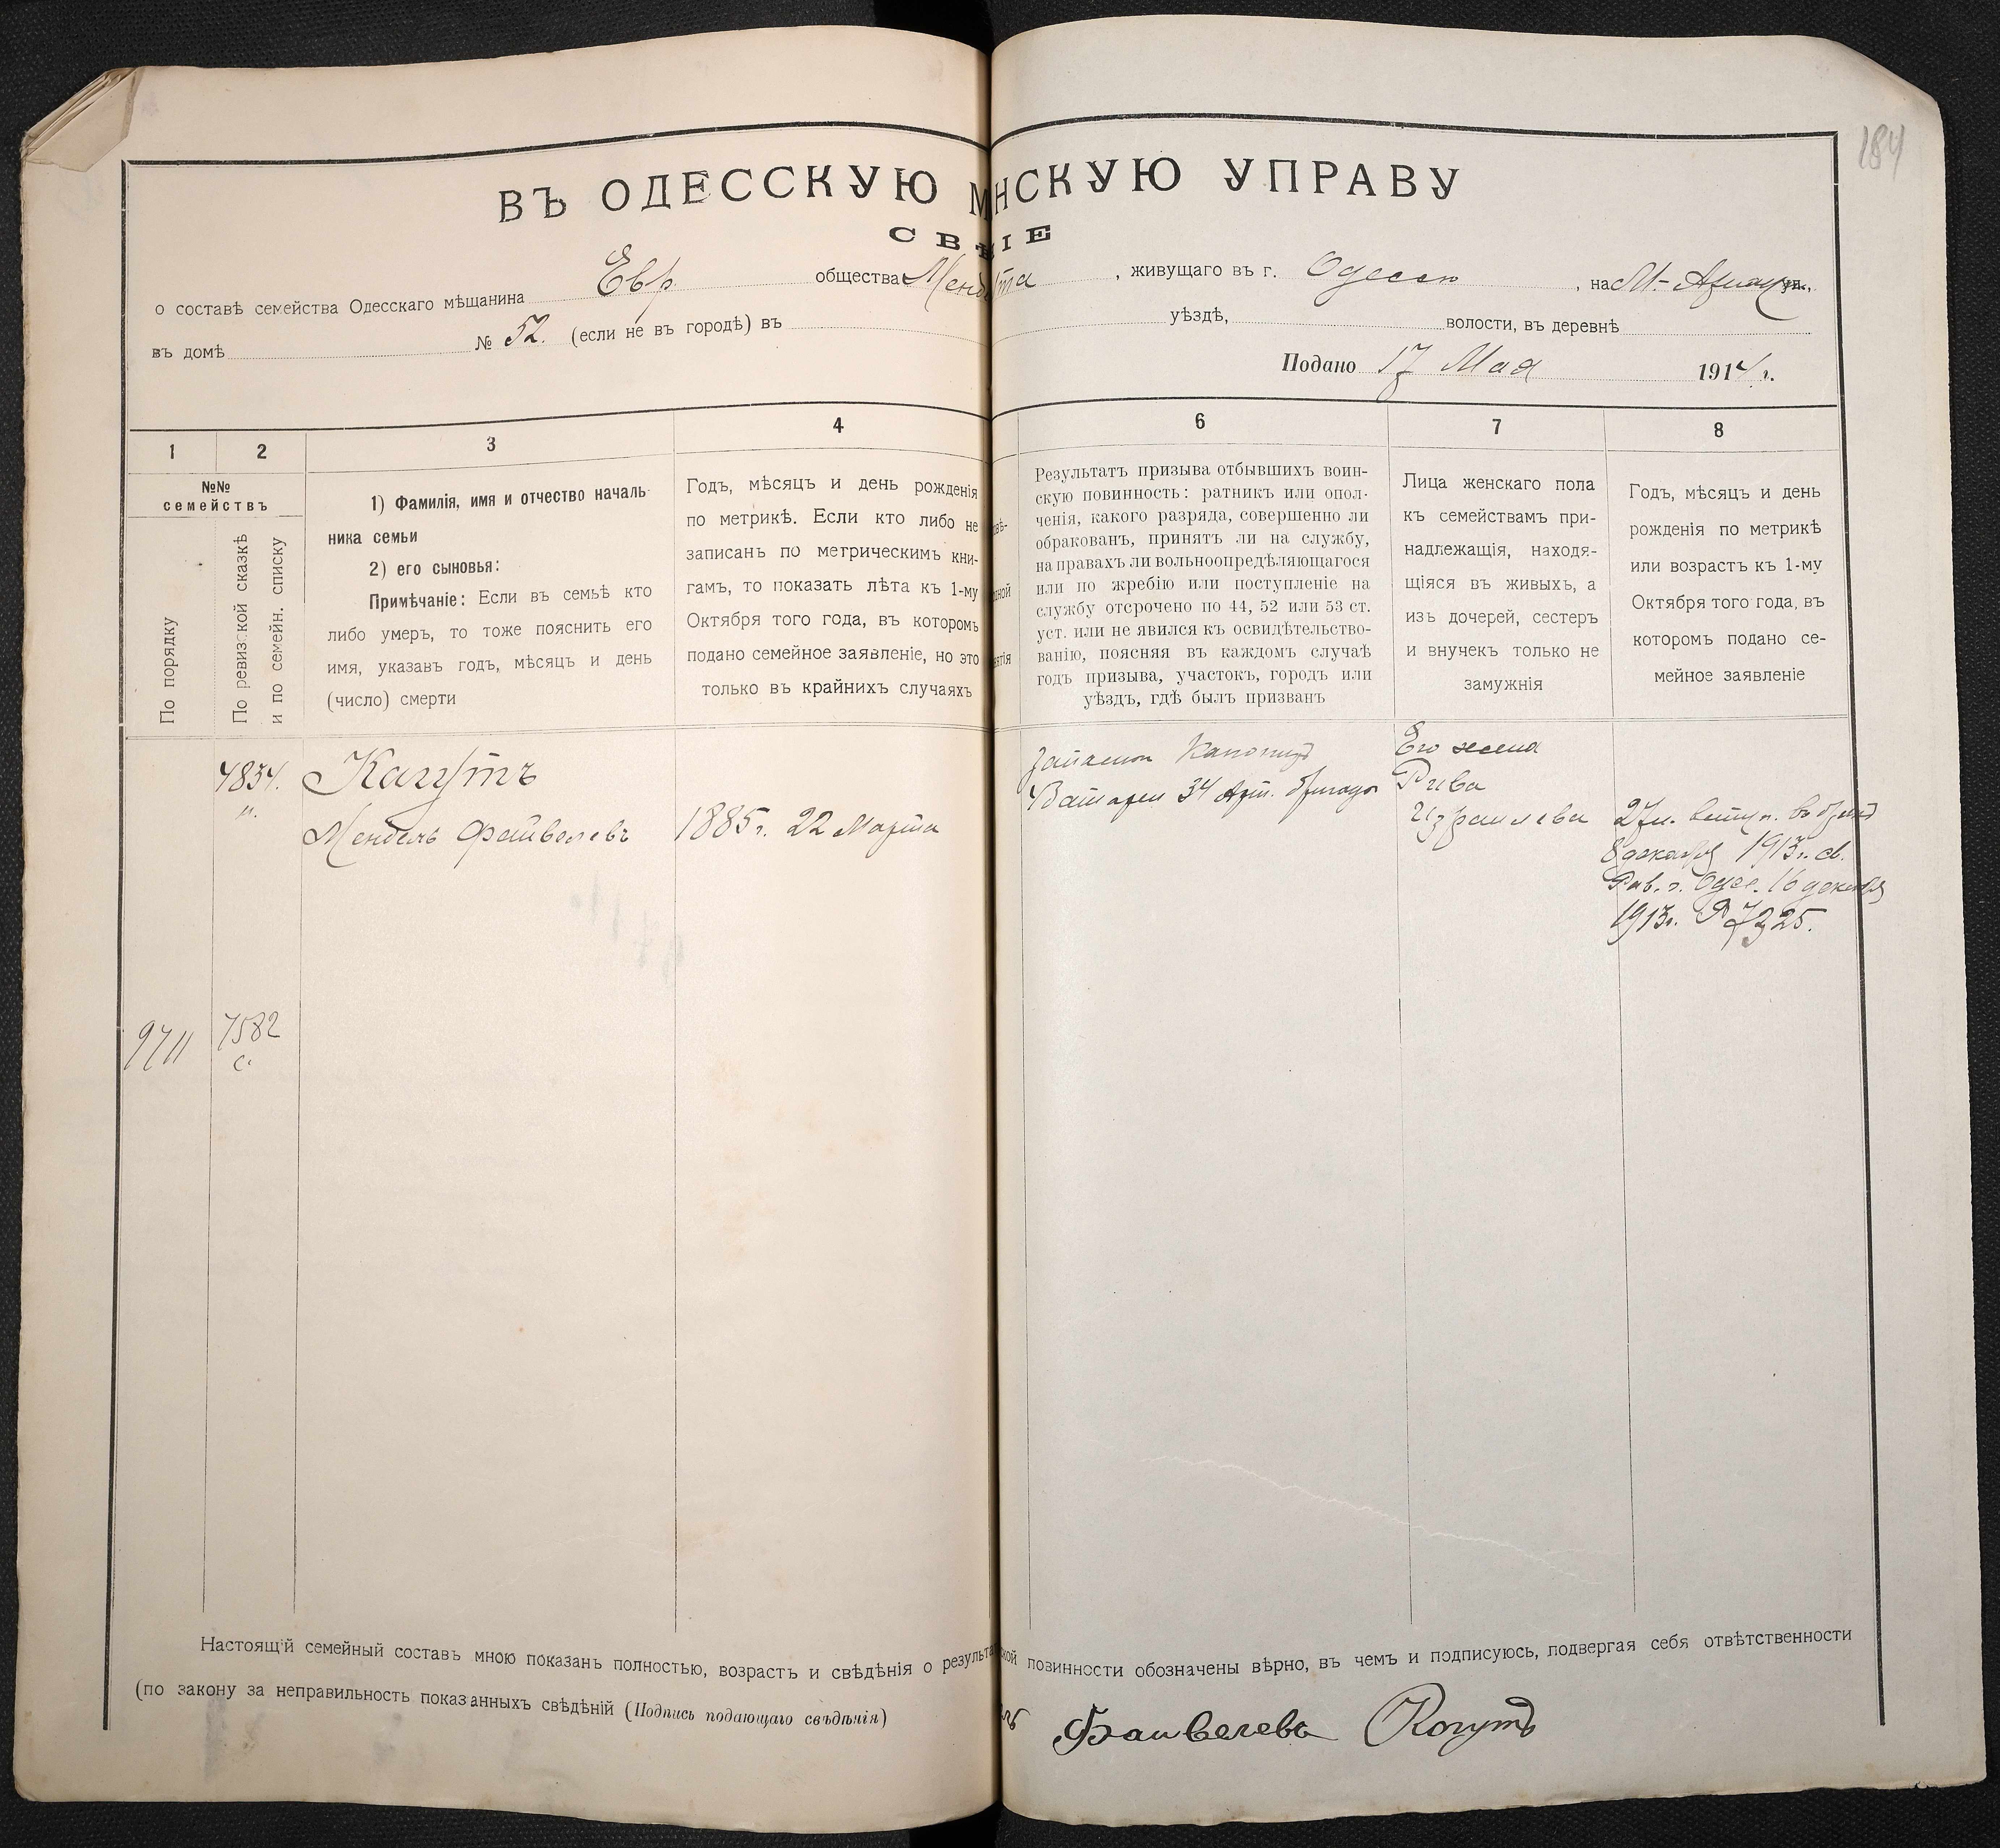 184
ВЪ ОДЕССКУЮ МНСКУЮ УПРАВУ
СВѢІЕ
о составѣ семейства Одесскаго мѣщанина Евр. общества , живущаго въ г. Одессѣ , на М-Арнаут. ул.,
въ домѣ № 52. (если не въ городѣ) въ уѣздѣ, волости, въ деревнѣ
Подано 17 Мая 1914 г.
1 2 3 4 6 7 8
№№
семействъ
По порядку
По ревизской сказкѣ
и по семейн. списку
1) Фамилія, имя и отчество началь-
ника семьи
2) его сыновья:
Примѣчаніе: Если въ семьѣ кто
либо умеръ, то тоже пояснить его
имя, указавъ годъ, мѣсяцъ и день
(число) смерти
Годъ, мѣсяцъ и день рожденія
по метрикѣ. Если кто либо не
записанъ по метрическимъ кни-
гамъ, то показать лѣта къ 1-му
Октября того года, въ которомъ
подано семейное заявленіе, но это
только въ крайнихъ случаяхъ
Результатъ призыва отбывшихъ воин-
скую повинность: ратникъ или опол-
ченія, какого разряда, совершенно ли
обракованъ, принятъ ли на службу,
на правахъ ли вольноопредѣляющагося
или по жребію или поступленіе на
службу отсрочено по 44, 52 или 53 ст.
уст. или не явился къ освидѣтельство-
ванію, поясняя въ каждомъ случаѣ
годъ призыва, участокъ, городъ или
уѣздъ, гдѣ былъ призванъ
Лица женскаго пола
къ семействамъ при-
надлежащія, находя-
щіяся въ живыхъ, а
изъ дочерей, сестеръ
и внучекъ только не
замужнія
Годъ, мѣсяцъ и день
рожденія по метрикѣ
или возрастъ къ 1-му
Октября того года, въ
которомъ подано се-
мейное заявленіе
4834.
Кагутъ
Мендель Файвелевъ
1885 г. 22 Марта
Батареи 34 Арт. бригады
Его жена
Рива
Израилева
27 л. вступ. въ бракъ
8 декабря 1913 г. св.
Рав. г. Одес. 16 декабря
1913 г. № 7325.
9711
7582
с.
Настоящій семейный составъ мною показанъ полностью, возрастъ и свѣдѣнія о результа ской повинности обозначены вѣрно, въ чемъ и подписуюсь, подвергая себя отвѣтственности
(по закону за неправильность показанныхъ свѣдѣній (Подпись подающаго свѣдѣнія)
Файвелевъ Когутъ